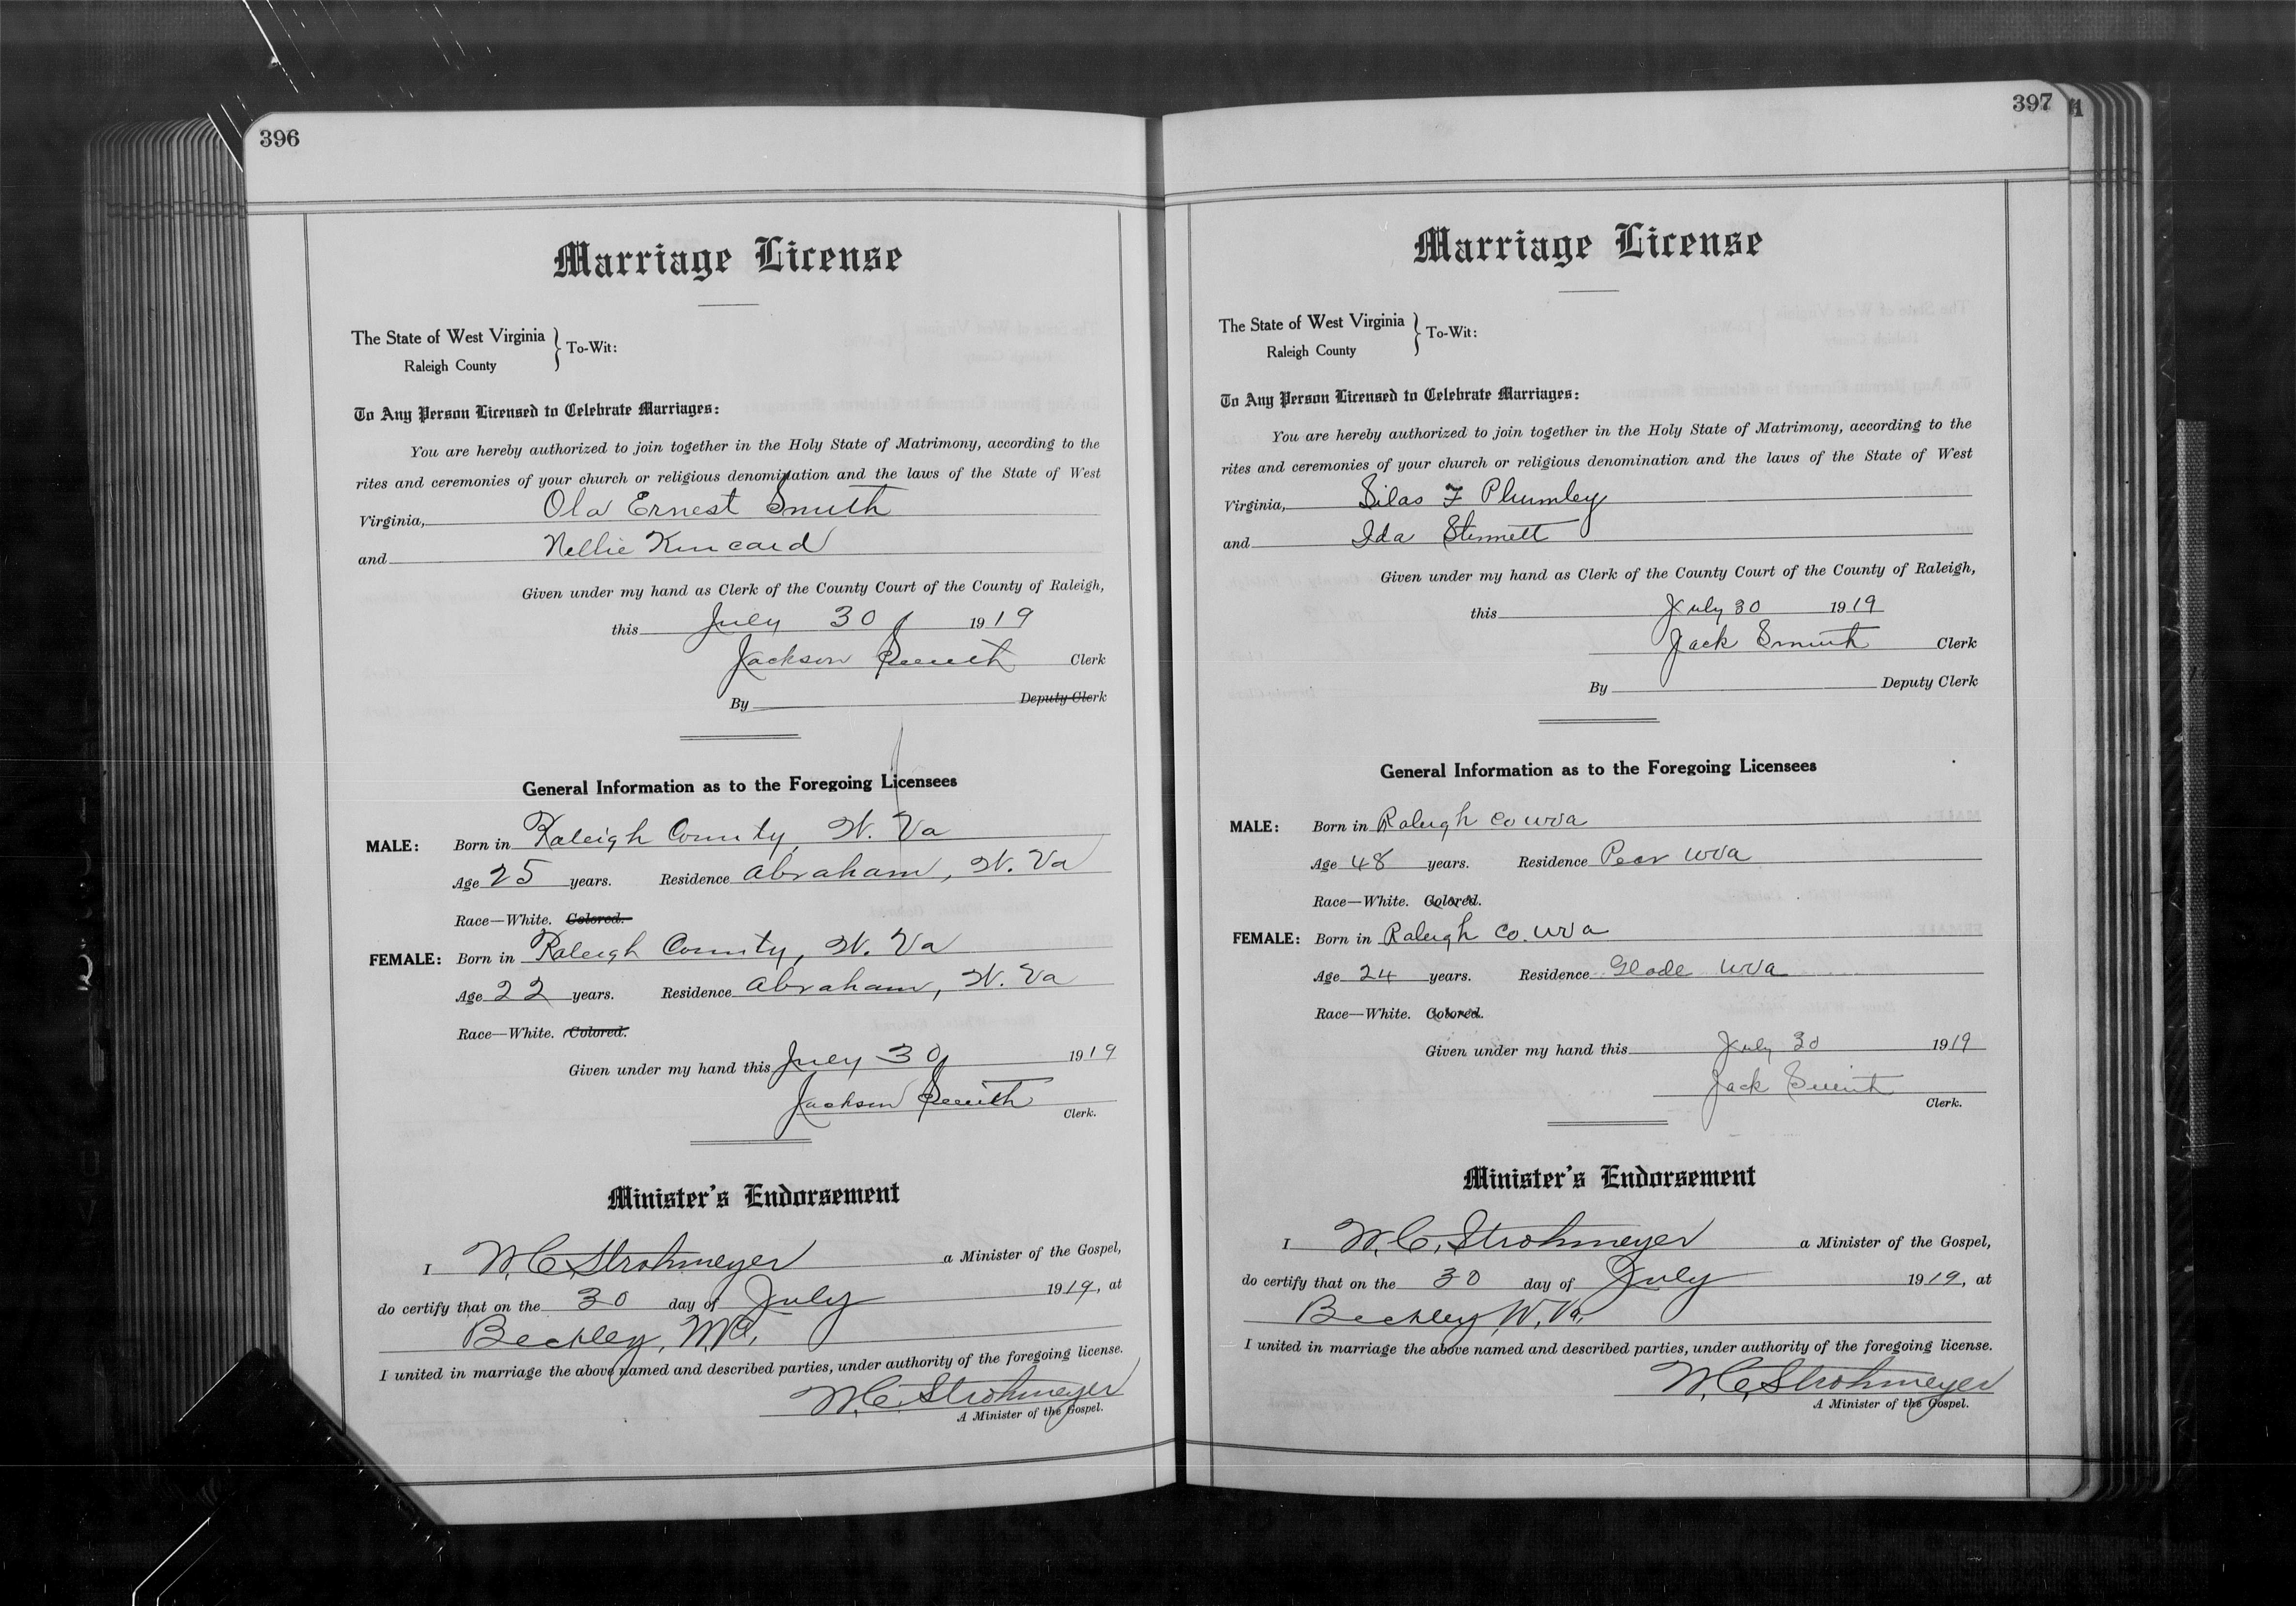 396
Marriage License
The State of West Virginia } To-Wit:
Raleigh County
To Any Person Licensed to Celebrate Marriages:
You are hereby authorized to join together in the Holy State of Matrimony, according to the
rites and ceremonies of your church or religious denomination and the laws of the State of West
Virginia, Ola Ernest Smith
and Nellie Kincaid
Given under my hand as Clerk of the County Court of the County of Raleigh,
this July 30 1919
Jackson Smith Clerk
By Deputy Clerk
General Information as to the Foregoing Licensees
MALE: Born in Raleigh County, W. Va
Age 25 years. Residence Abraham, W. Va
Race—White. Colored.
FEMALE: Born in Raleigh County, W. Va
Age 22 years. Residence Abraham, W. Va
Race—White. Colored.
Given under my hand this July 30 1919
Jackson Smith
Clerk.
Minister's Endorsement
I W. C. Strohmeyer a Minister of the Gospel,
do certify that on the 30 day of July 1919, at
Beckley,
I united in marriage the above named and described parties, under authority of the foregoing license.
W. C. Strohmeyer
A Minister of the Gospel.
397
Marriage License
The State of West Virginia } To-Wit:
Raleigh County
To Any Person Licensed to Celebrate Marriages:
You are hereby authorized to join together in the Holy State of Matrimony, according to the
rites and ceremonies of your church or religious denomination and the laws of the State of West
Virginia, Silas F Plumley
and Ida Stennett
Given under my hand as Clerk of the County Court of the County of Raleigh,
this July 30 1919
Jack Smith Clerk
By Deputy Clerk
General Information as to the Foregoing Licensees
MALE: Born in Raleigh Co wva
Age 48 years. Residence wva
Race—White. Colored.
FEMALE: Born in Raleigh Co. wva
Age 24 years. Residence Glade wva
Race—White. Colored.
Given under my hand this July 30 1919
Jack Smith
Clerk.
Minister's Endorsement
I W. C. Strohmeyer a Minister of the Gospel,
do certify that on the 30 day of July 1919, at
Beckley, W. Va.
I united in marriage the above named and described parties, under authority of the foregoing license.
W. C. Strohmeyer
A Minister of the Gospel.